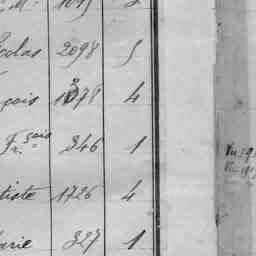 colas 2098 5
çois 1378 4
Fr.çois 346 1
tiste 1726 4
arie 327 1